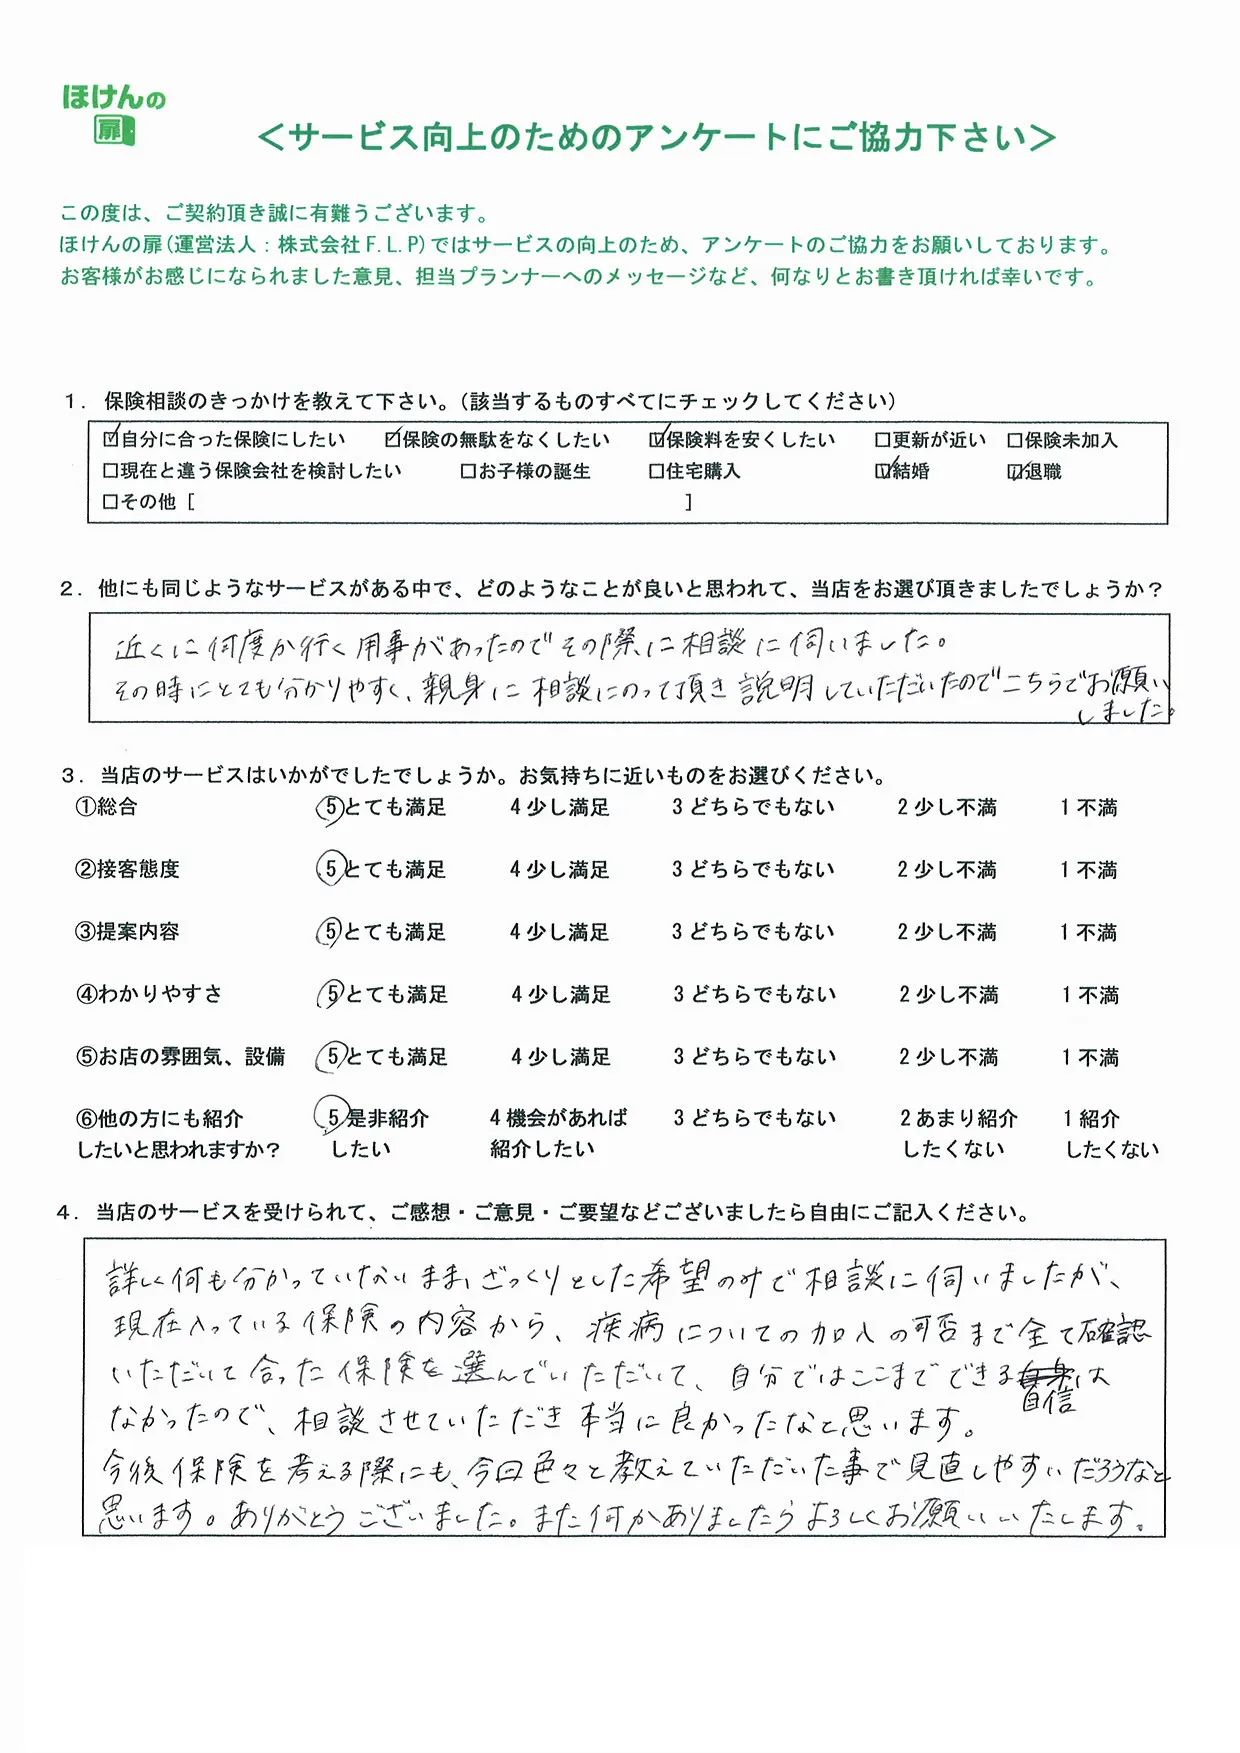 ほけんの
扉
＜サービス向上のためのアンケートにご協力下さい＞
この度は、ご契約頂き誠に有難うございます。
ほけんの扉(運営法人：株式会社F.L.P)ではサービスの向上のため、アンケートのご協力をお願いしております。
お客様がお感じになられました意見、担当プランナーへのメッセージなど、何なりとお書き頂ければ幸いです。
１．保険相談のきっかけを教えて下さい。（該当するものすべてにチェックしてください）
☑自分に合った保険にしたい ☑保険の無駄をなくしたい ☑保険料を安くしたい □更新が近い □保険未加入
□現在と違う保険会社を検討したい □お子様の誕生 □住宅購入 ☑結婚 ☑退職
□その他［ ］
２．他にも同じようなサービスがある中で、どのようなことが良いと思われて、当店をお選び頂きましたでしょうか？
近くに何度か行く用事があったのでその際に相談に伺いました。
その時にとても分かりやすく、親身に相談にのって頂き説明していただいたのでこちらでお願い
しました。
３．当店のサービスはいかがでしたでしょうか。お気持ちに近いものをお選びください。
①総合 5とても満足 4少し満足 3どちらでもない 2少し不満 1不満
②接客態度 5とても満足 4少し満足 3どちらでもない 2少し不満 1不満
③提案内容 5とても満足 4少し満足 3どちらでもない 2少し不満 1不満
④わかりやすさ 5とても満足 4少し満足 3どちらでもない 2少し不満 1不満
⑤お店の雰囲気、設備 5とても満足 4少し満足 3どちらでもない 2少し不満 1不満
⑥他の方にも紹介 5是非紹介 4機会があれば 3どちらでもない 2あまり紹介 1紹介
したいと思われますか？ したい 紹介したい したくない したくない
４．当店のサービスを受けられて、ご感想・ご意見・ご要望などございましたら自由にご記入ください。
詳しく何も分かっていないまま、ざっくりとした希望のみで相談に伺いましたが、
現在入っている保険の内容から、疾病についての加入の可否まで全て確認
いただいて合った保険を選んでいただいて、自分ではここまでできる自身は
自信
なかったので、相談させていただき本当に良かったなと思います。
今後保険を考える際にも、今回色々と教えていただいた事で見直しやすいだろうなと
思います。ありがとうございました。また何かありましたらよろしくお願いいたします。